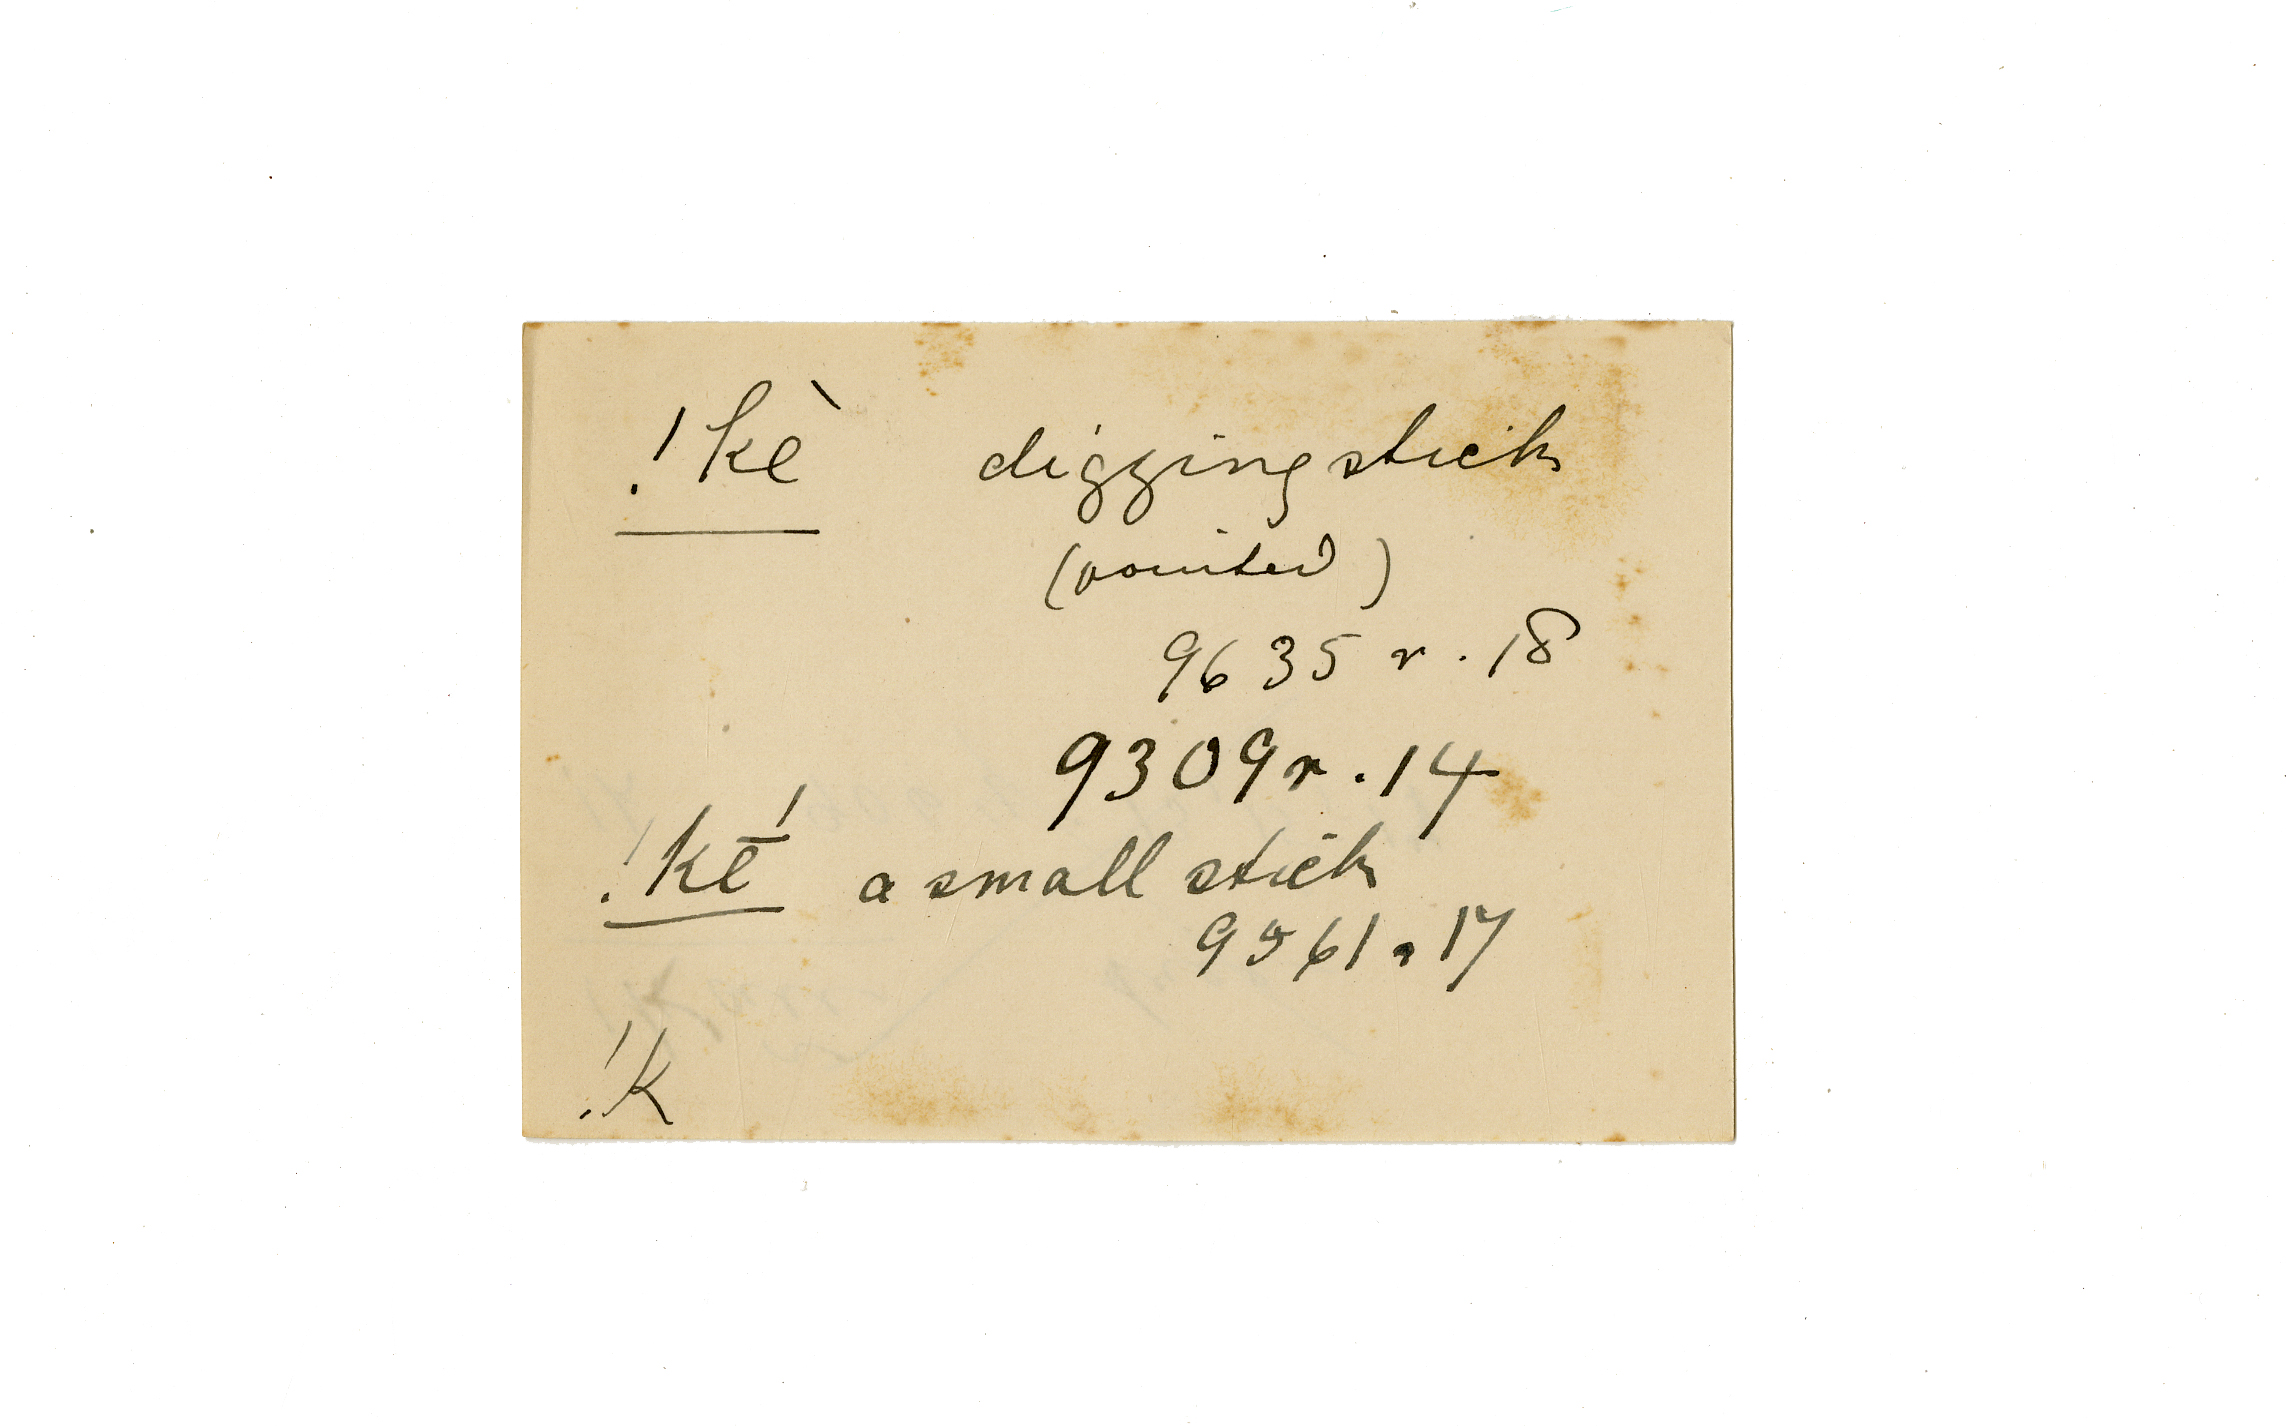 !kè diggingstick
(pointed)
9635 r. 18
9309 r. 14
!kḗ a small stick
9961.17
!k